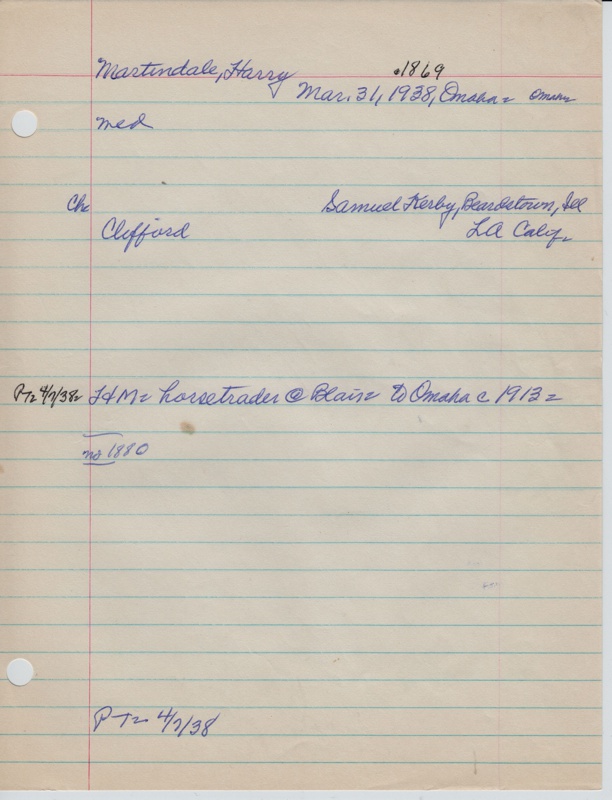 Martindale, Harry c1869
Mar. 31, 1938, Omaha = Omaha
med
Ch Samuel Kerby, Beardstown, Ill
Clifford LA Calif
PT= 4/7/38= HM= horsetrader @ Blair= to Omaha c 1913=
no 1880
PT= 4/7/38